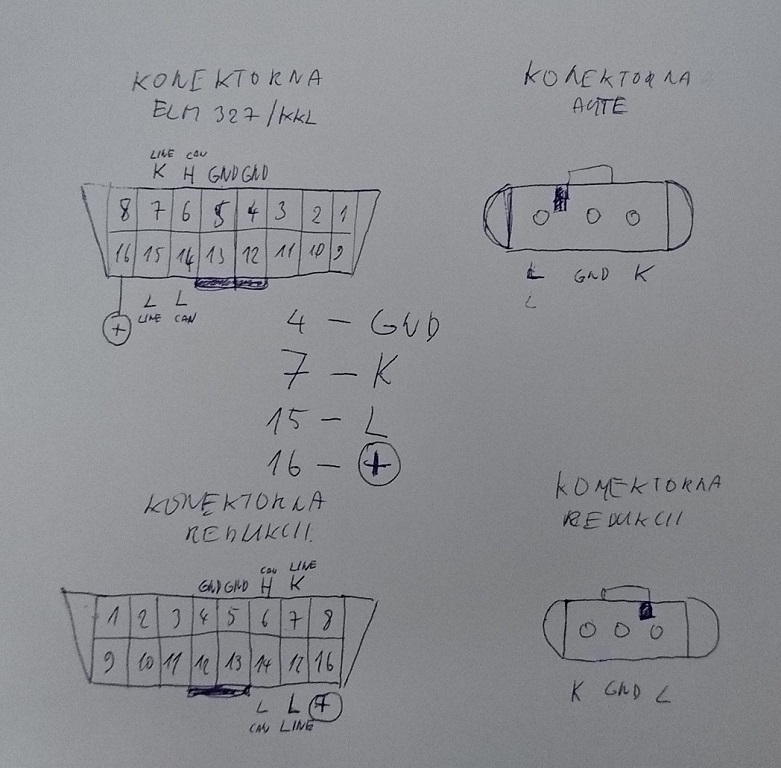 KONEKTOR NA
ELM 327/KKL
LINE CAN
K H GND GND
8 7 6 5 4 3 2 1
16 15 14 13 12 11 10 9
L L
+ LINE CAN
KONEKTOR NA
AUTE
L GND K
L
4 - GND
7 - K
15 - L
16 - +
KONEKTOR NA
REDUKCII
CAN LINE
GND GND H K
1 2 3 4 5 6 7 8
9 10 11 12 13 14 15 16
L L +
CAN LINE
KONEKTOR NA
REDUKCII
K GND L